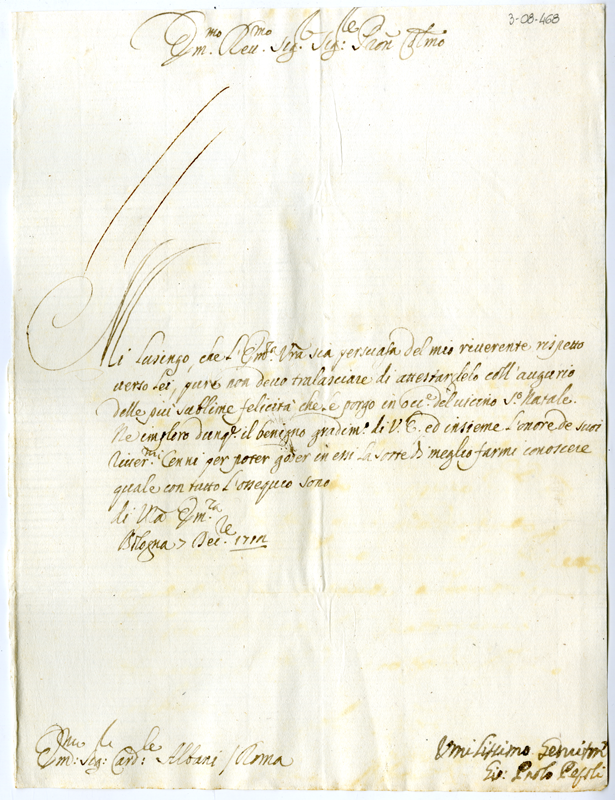 3-08-468
Em.mo Rev.mo Sig.r Sig.r Pron Col.mo
Mi lusingo, che l'Em.za Vra sia persuasa del mio riverente rispetto
verso lei, pure non devo tralasciare di attestarglelo coll'augurio
delle più sublime felicità che le porgo in occ.e del vicino S.o Natale.
Ne imploro dunq.e il benigno gradim.o di V.E. ed insieme l'onore de suoi
river.mi Cenni per poter goder in essi la sorte di meglio farmi conoscere
quale con tutto l'ossequio sono
di Vra Em.za
Bologna 7 Dec.re
Em.mo Sig.r Card.le Albani Roma
Umilissimo
Gio: Paolo